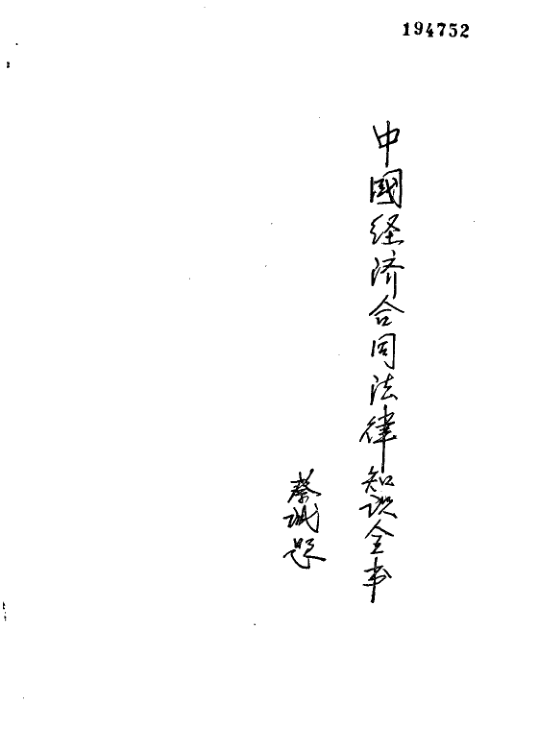 194752
中國经济合同法律知识全书
蔡诚题